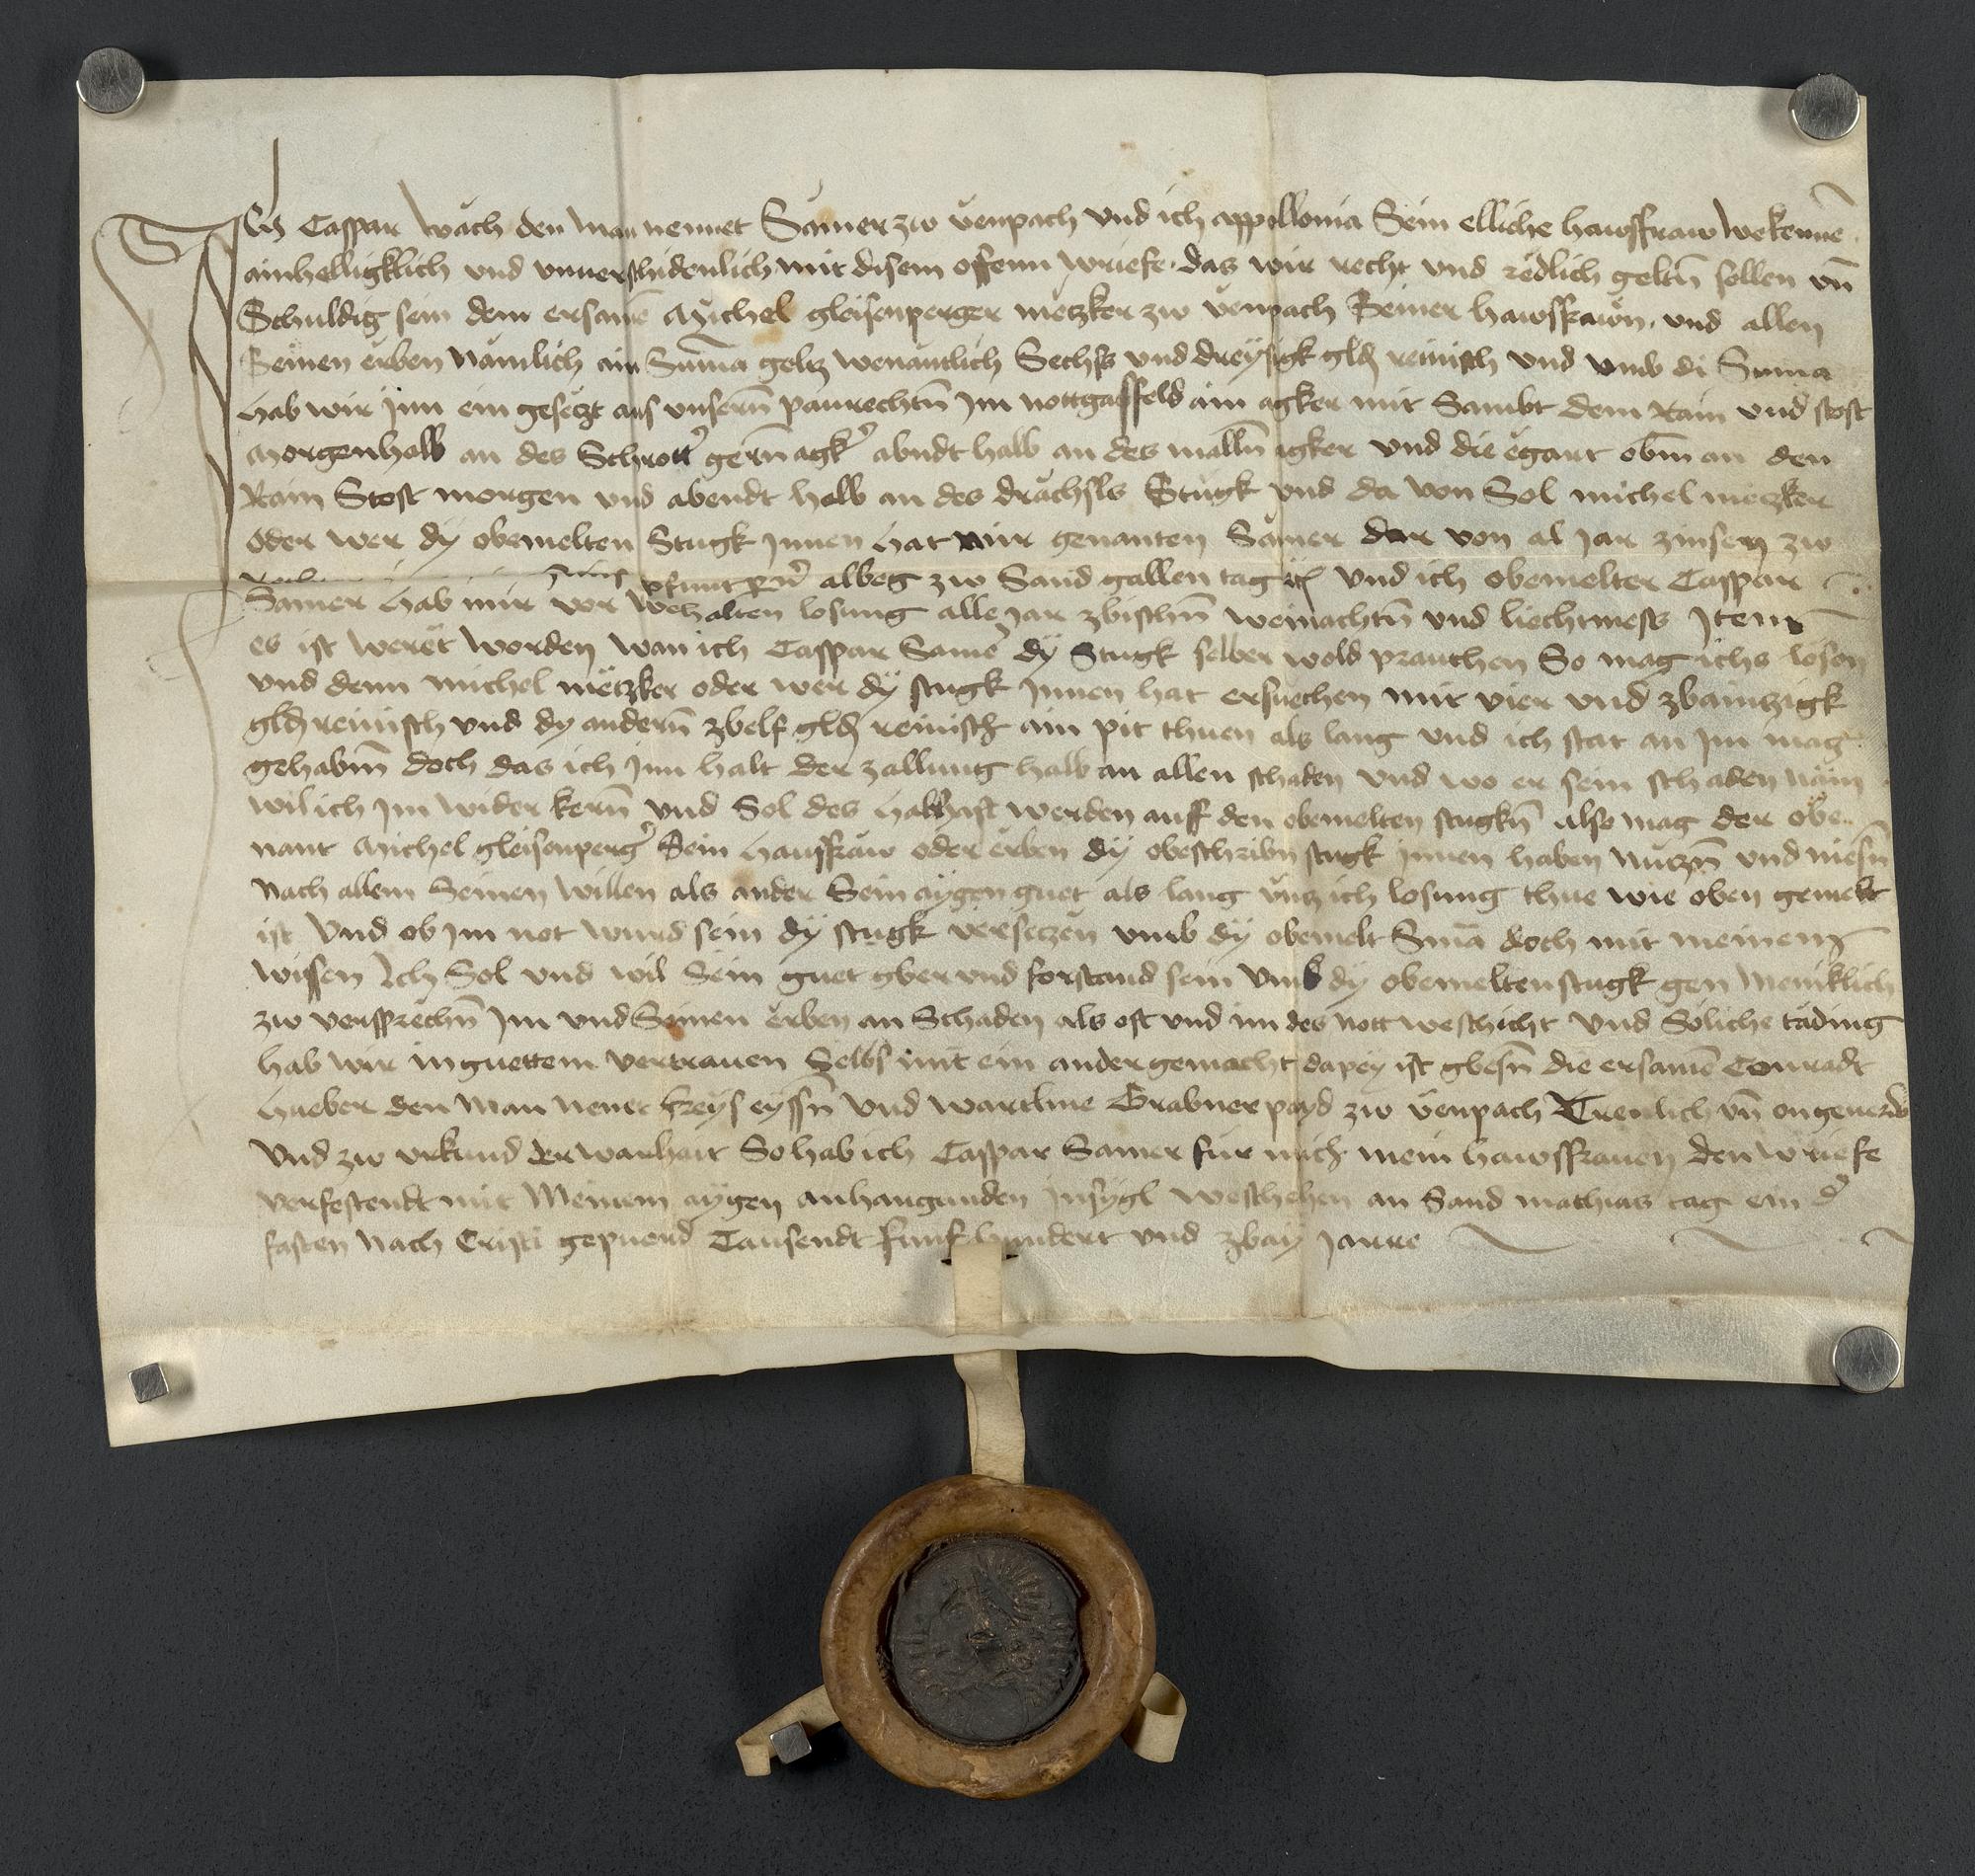 Ich Caspar Wach den man nennet Samer zw Venpach und ich appollonia Sein elliche hawsfraw wekenne
ainhelligklich und unuerschidenlich mit disem offenn wriefe das wir recht und redlich geltn̄ sollen vn̄
Schuldig sein dem ersamē Michel gleisenperger metzker zw Venpach Seiner hawsfrawn und allen
Seinen erben nämlich ain Suma geltz wenantlich Sechs und dreysigk gld reinisch und umb di Suma
hab wir jnn ein gesetzt aus unsern̄ paurechtn̄ Jm nottgassfeld ain agker mit Sambt dem Rain und stost
Morgenhalb an des Schrott gern̄ agk abndt halb an des malln̄ agker und die egart obm̄ an den
Rain Stost morgen und abendt halb an des drachsls Stugk und da von Sol michel metzker
oder wer dy obemelten Stugk Jnnen hat mir genanten Samer dar von al Jar zinsen zw
pfunt albeg zw Sand gallen tag und ich obemelter Caspar
Samer hab mir vor wehalten losung alle Jar zbischn̄ weinachtn̄ und liechtmess Jtem
es ist weret worden wan ich Caspar Samer dy Stugk selber wold prauchen So mag ichs lösen
und denn michel metzker oder wer dy stugk Jnnen hat ersuechen mit vier und zbainzigk
gld reinisch und dy andern̄ zbelf gld reinisch ain pit thuen als lang und ich stat an Jm mag
gehabm̄ doch das ich jnn halt der zallung halb an allen schaden und wo er sein schaden näm
wil ich Jm wider kern̄ und Sol des habhaft werden auff den obemelten stugkn̄ also mag der obe
nant Michel gleisenperg Sein hausfraw oder erben dy obeschribn stugk Jnnen haben nutzn̄ und niesn̄
nach allem Seinen willen als ander Sein aygen guet als lang untz ich losung thue wie oben gemelt
ist Und ob Jm not wurd sein dy stugk versetzen umb dy obemelt Sum̄a doch mit meinem
wissen Ich Sol und wil Sein guet gber und forstand sein Umb dy obemelten stugk gen Meniklich
zw versprechn̄ Jm und Seinen erben an Schaden als oft und im des nott weschicht Und Söliche täding
hab wir in guettem vertrauen Selbs mit ein ander gemacht dapey ist gbesn̄ die ersamē Conradt
hueber den Man nenet freys eyssn̄ Und Wartlme Grabner payd zw Venpach Treulich vn̄ ongeuerdt
Und zw urkund der warhait So hab ich Caspar Samer für mich mein hawsfrauen den wriefe
verfestendt mit Meinem aygen anhangunden Jnsygl weschehen an Sand mathias tag ein d
fasten Nach Cristi gepuerd Tausendt funf hundert und zbay Jarre